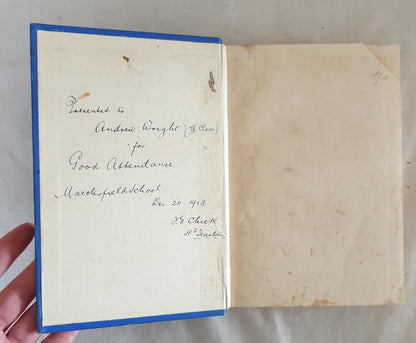 Presented to
Andrew Wright
for
Good Attendance
Macclesfield School.
Dec. 20. 1913.
Cheek
Hd Teacher